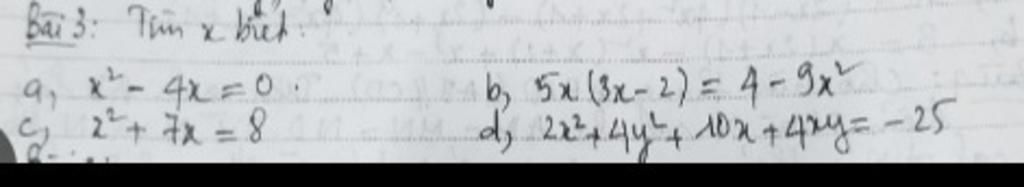 Bài 3: Tìm x biết:
a, x² - 4x = 0. b, 5x(3x-2) = 4 - 9x²
c, x² + 7x = 8 d, 2x² + 4y² + 10x + 4xy = -25